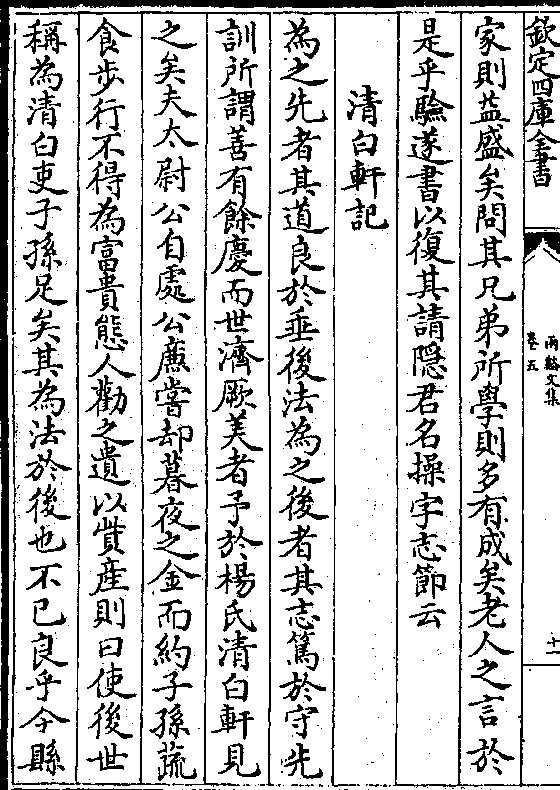 欽定四庫全書
兩谿文集
卷五
十一
家則益盛矣問其兄弟所學則多有成矣老人之言於
是乎驗遂書以復其請隱君名操字志節云
清白軒記
為之先者其道良於垂後法為之後者其志篤於守先
訓所謂善有餘慶而世濟厥美者予於楊氏清白軒見
之矣夫太尉公自處公廉嘗却暮夜之金而約子孫蔬
食步行不得為富貴態人勸之遺以貲産則曰使後世
稱為清白吏子孫足矣其為法於後也不已良乎今縣